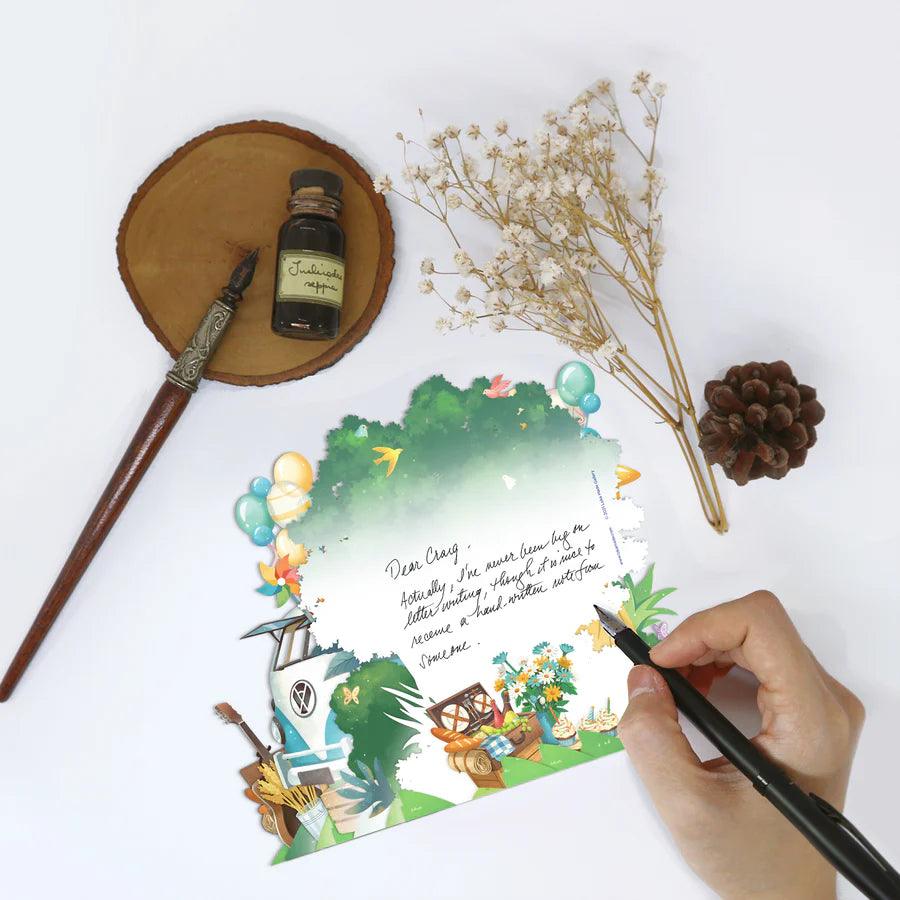 Dear Craig.
Actually, I've never been big on
letter writing, though it is nice to
receive a hand-written note from
someone.